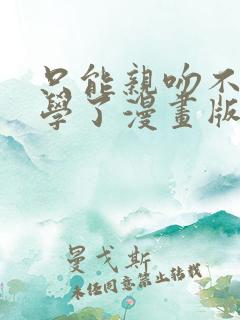 只能親吻不
學了漫畫版
曼戈斯
未任同意禁止轉載